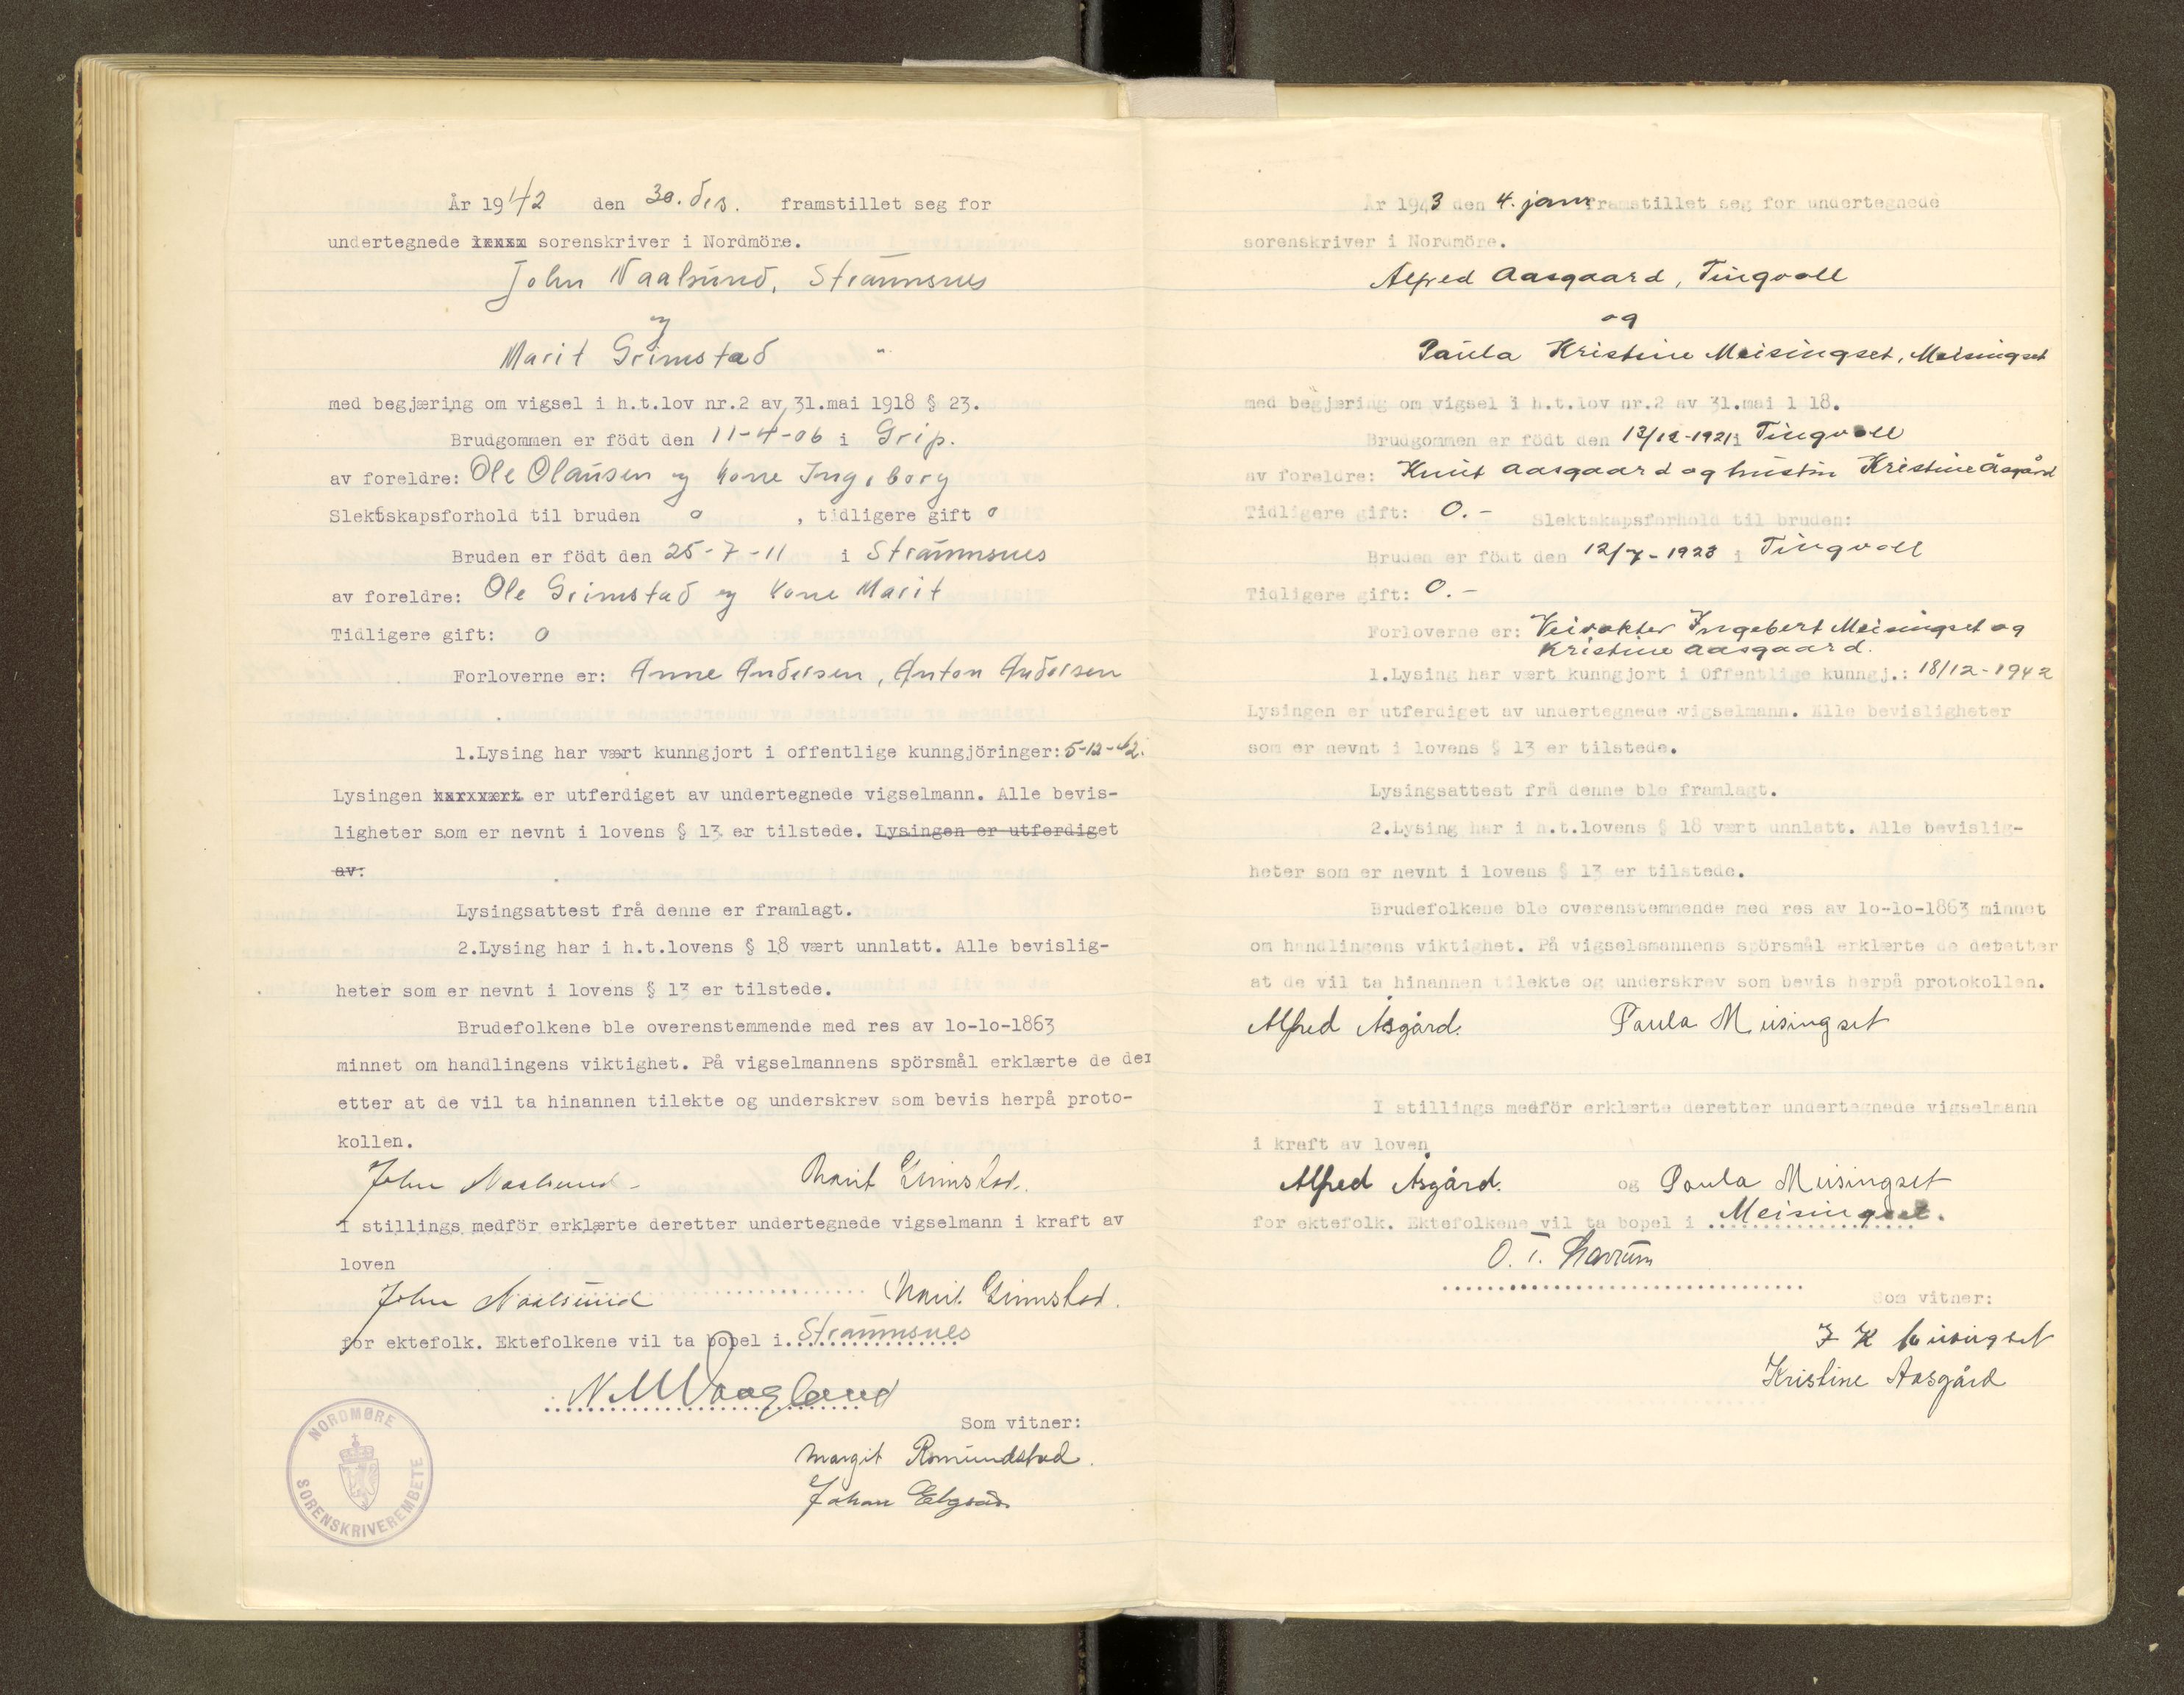 År 1942 den 30. des. framstillet seg for
undertegnede sorenskriver i Nordmöre.
John Naalsund, Straumsnes
og
Marit Grimstad "
med begjæring om vigsel i h.t.lov nr.2 av 31.mai 1918 § 23.
Brudgommen er födt den 11-4-06 i Grip.
av foreldre: Ole Olausen og kone Ingeborg
Slektskapsforhold til bruden 0 , tidligere gift 0
Bruden er födt den 25-7-11 i Straumsnes
av foreldre: Ole Grimstad og kone Marit
Tidligere gift: 0
Forloverne er: Anne Andersen, Anton Andersen
1.Lysing har vært kunngjort i offentlige kunngjöringer: 5-12-42.
Lysingen er utferdiget av undertegnede vigselmann. Alle bevis-
ligheter som er nevnt i lovens § 13 er tilstede. Lysingen er utferdiget
av:
Lysingsattest frå denne er framlagt.
2.Lysing har i h.t.lovens § 18 vært unnlatt. Alle bevislig-
heter som er nevnt i lovens § 13 er tilstede.
Brudefolkene ble overenstemmende med res av lo-lo-1863
minnet om handlingens viktighet. På vigselmannens spörsmål erklærte de der
etter at de vil ta hinannen tilekte og underskrev som bevis herpå proto-
kollen.
John Naalsund Marit Grimstad.
I stillings medför erklærte deretter undertegnede vigselmann i kraft av
loven
John Naalsund Marit Grimstad.
for ektefolk. Ektefolkene vil ta bopel i Straumsnes
Som vitner:
Margit Romundstad.
Johan
NORDMØRE
SORENSKRIVEREMBETE
År 1943 den 4. jan. framstillet seg for undertegnede
sorenskriver i Nordmöre.
Alfred Aasgaard, Tingvoll
og
Paula Kristine Meisingset, Meisingset
med begjæring om vigsel i h.t.lov nr.2 av 31.mai 1 18.
Brudgommen er födt den 13/12-1921 i Tingvoll
av foreldre: Knut Aasgaard og hustru Kristine Åsgård
Tidligere gift: 0.- Slektskapsforhold til bruden:
Bruden er födt den 12/7-1923 i Tingvoll
Tidligere gift: 0.-
Forloverne er: Veivokter Ingebert Meisingset og
Kristine Aasgaard.
1.Lysing har vært kunngjort i Offentlige kunngj.: 18/12-1942
Lysingen er utferdiget av undertegnede vigselmann. Alle bevisligheter
som er nevnt i lovens § 13 er tilstede.
Lysingsattest frå denne ble framlagt.
2.Lysing har i h.t.lovens § 18 vært unnlatt. Alle bevislig-
heter som er nevnt i lovens § 13 er tilstede.
Brudefolkene ble overenstemmende med res av lo-lo-1863 minnet
om handlingens viktighet. På vigselsmannens spörsmål erklærte de deretter
at de vil ta hinannen tilekte og underskrev som bevis herpå protokollen.
Alfred Åsgård. Paula Meisingset
I stillings medför erklærte deretter undertegnede vigselmann
i kraft av loven
Alfred Åsgård. og Paula Meisingset
for ektefolk. Ektefolkene vil ta bopel i Meisingset.
O. T.
Som vitner:
I K Meisingset
Kristine Aasgård